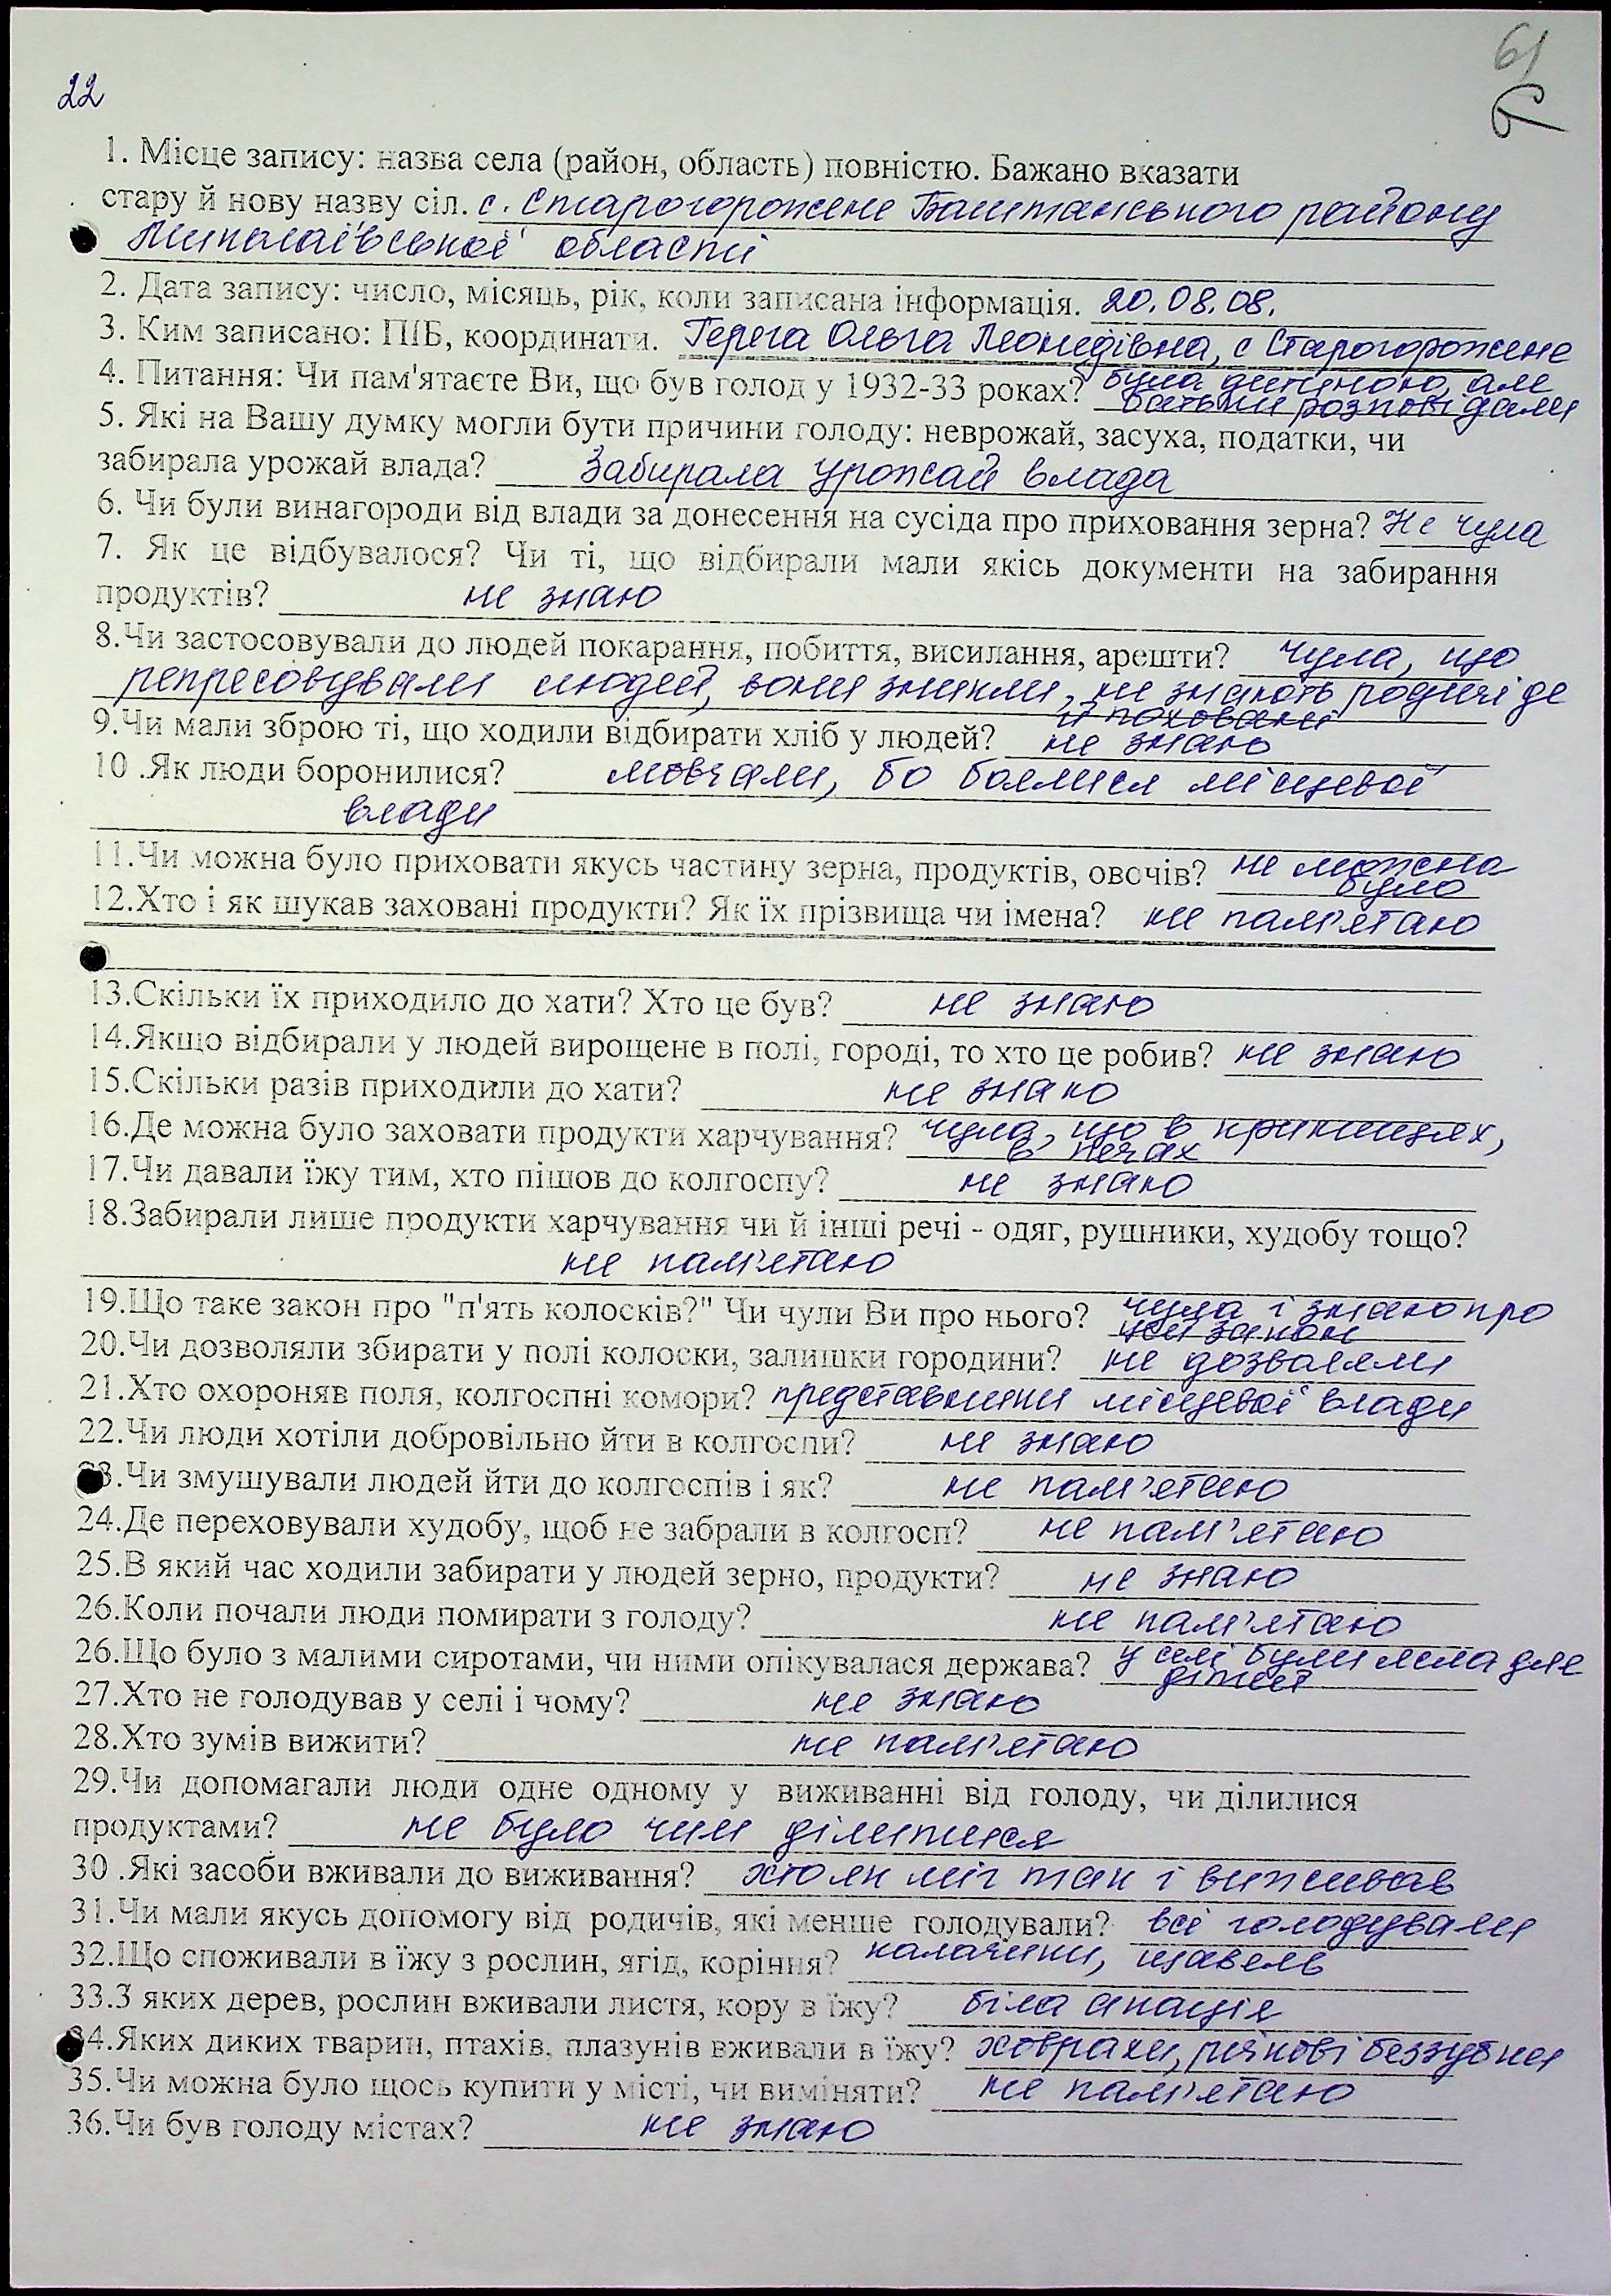 61
22
1. Місце запису: назва села (район, область) повністю. Бажано вказати
стару й нову назву сіл. с. Старогорожене Баштанського району
Миколаївської області
2. Дата запису: число, місяць, рік, коли записана інформація. 20.08.08.
3. Ким записано: ПІБ, координати. Герега Ольга Леонідівна, с Старогорожене
4. Питання: Чи пам'ятаєте Ви, що був голод у 1932-33 роках? була дитиною, але
батьки розповідали
5. Які на Вашу думку могли бути причини голоду: неврожай, засуха, податки, чи
забирала урожай влада? Забирала урожай влада
6. Чи були винагороди від влади за донесення на сусіда про приховання зерна? Не чула
7. Як це відбувалося? Чи ті, що відбирали мали якісь документи на забирання
продуктів? не знаю
8.Чи застосовували до людей покарання, побиття, висилання, арешти? чула, що
репресовували людей, вони зникли, не знають родичі де
й поховані
9.Чи мали зброю ті, що ходили відбирати хліб у людей? не знаю
10 .Як люди боронилися? мовчали, бо боялися місцевої
влади
11.Чи можна було приховати якусь частину зерна, продуктів, овочів? не можна
було
12.Хто і як шукав заховані продукти? Як їх прізвища чи імена? не пам'ятаю
13.Скільки їх приходило до хати? Хто це був? не знаю
14.Якщо відбирали у людей вирощене в полі, городі, то хто це робив? не знаю
15.Скільки разів приходили до хати? не знаю
16.Де можна було заховати продукти харчування? чула, що в криницях,
в печах
17.Чи давали їжу тим, хто пішов до колгоспу? не знаю
18.Забирали лише продукти харчування чи й інші речі - одяг, рушники, худобу тощо?
не пам'ятаю
19.Що таке закон про "п'ять колосків?" Чи чули Ви про нього? чула і знаю про
цей закон
20.Чи дозволяли збирати у полі колоски, залишки городини? не дозволяли
21.Хто охороняв поля, колгоспні комори? представники місцевої влади
22.Чи люди хотіли добровільно йти в колгоспи? не знаю
23.Чи змушували людей йти до колгоспів і як? не пам'ятаю
24.Де переховували худобу, щоб не забрали в колгосп? не пам'ятаю
25.В який час ходили забирати у людей зерно, продукти? не знаю
26.Коли почали люди помирати з голоду? не пам'ятаю
26.Що було з малими сиротами, чи ними опікувалася держава? у селі були ясла для
дітей
27.Хто не голодував у селі і чому? не знаю
28.Хто зумів вижити? не пам'ятаю
29.Чи допомагали люди одне одному у виживанні від голоду, чи ділилися
продуктами? не було чим ділитися
30 .Які засоби вживали до виживання? хто як міг так і виживав
31.Чи мали якусь допомогу від родичів, які менше голодували? всі голодували
32.Що споживали в їжу з рослин, ягід, коріння? калачики, щавель
33.З яких дерев, рослин вживали листя, кору в їжу? біла акація
34.Яких диких тварин, птахів, плазунів вживали в їжу? ховрахи, річкові беззубки
35.Чи можна було щось купити у місті, чи виміняти? не пам'ятаю
36.Чи був голоду містах? не знаю